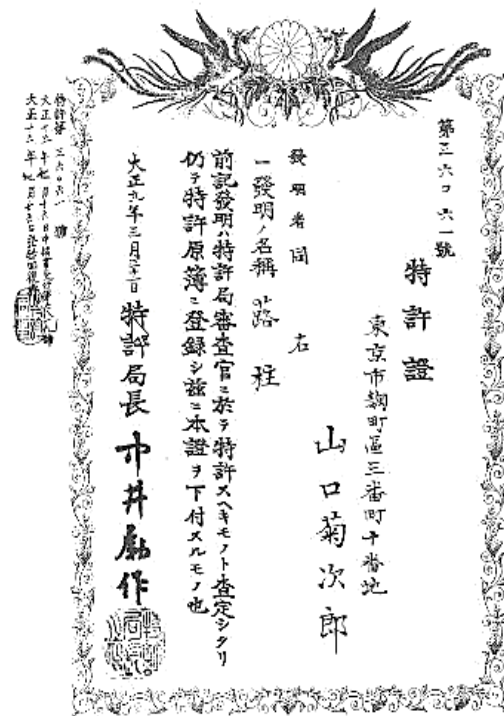 第三六〇六一號
特許證
東京市麹町區三番町十番地
山口菊次郎
發明者同右
一發明ノ名稱 路柱
前記發明ハ特許局審査官ニ於テ特許スヘキモノト査定シタリ
仍テ特許原簿ニ登録シ茲ニ本證ヲ下付スルモノ也
大正九年三月三十一日
特許局長 中井勵作
特許第三六〇六一號